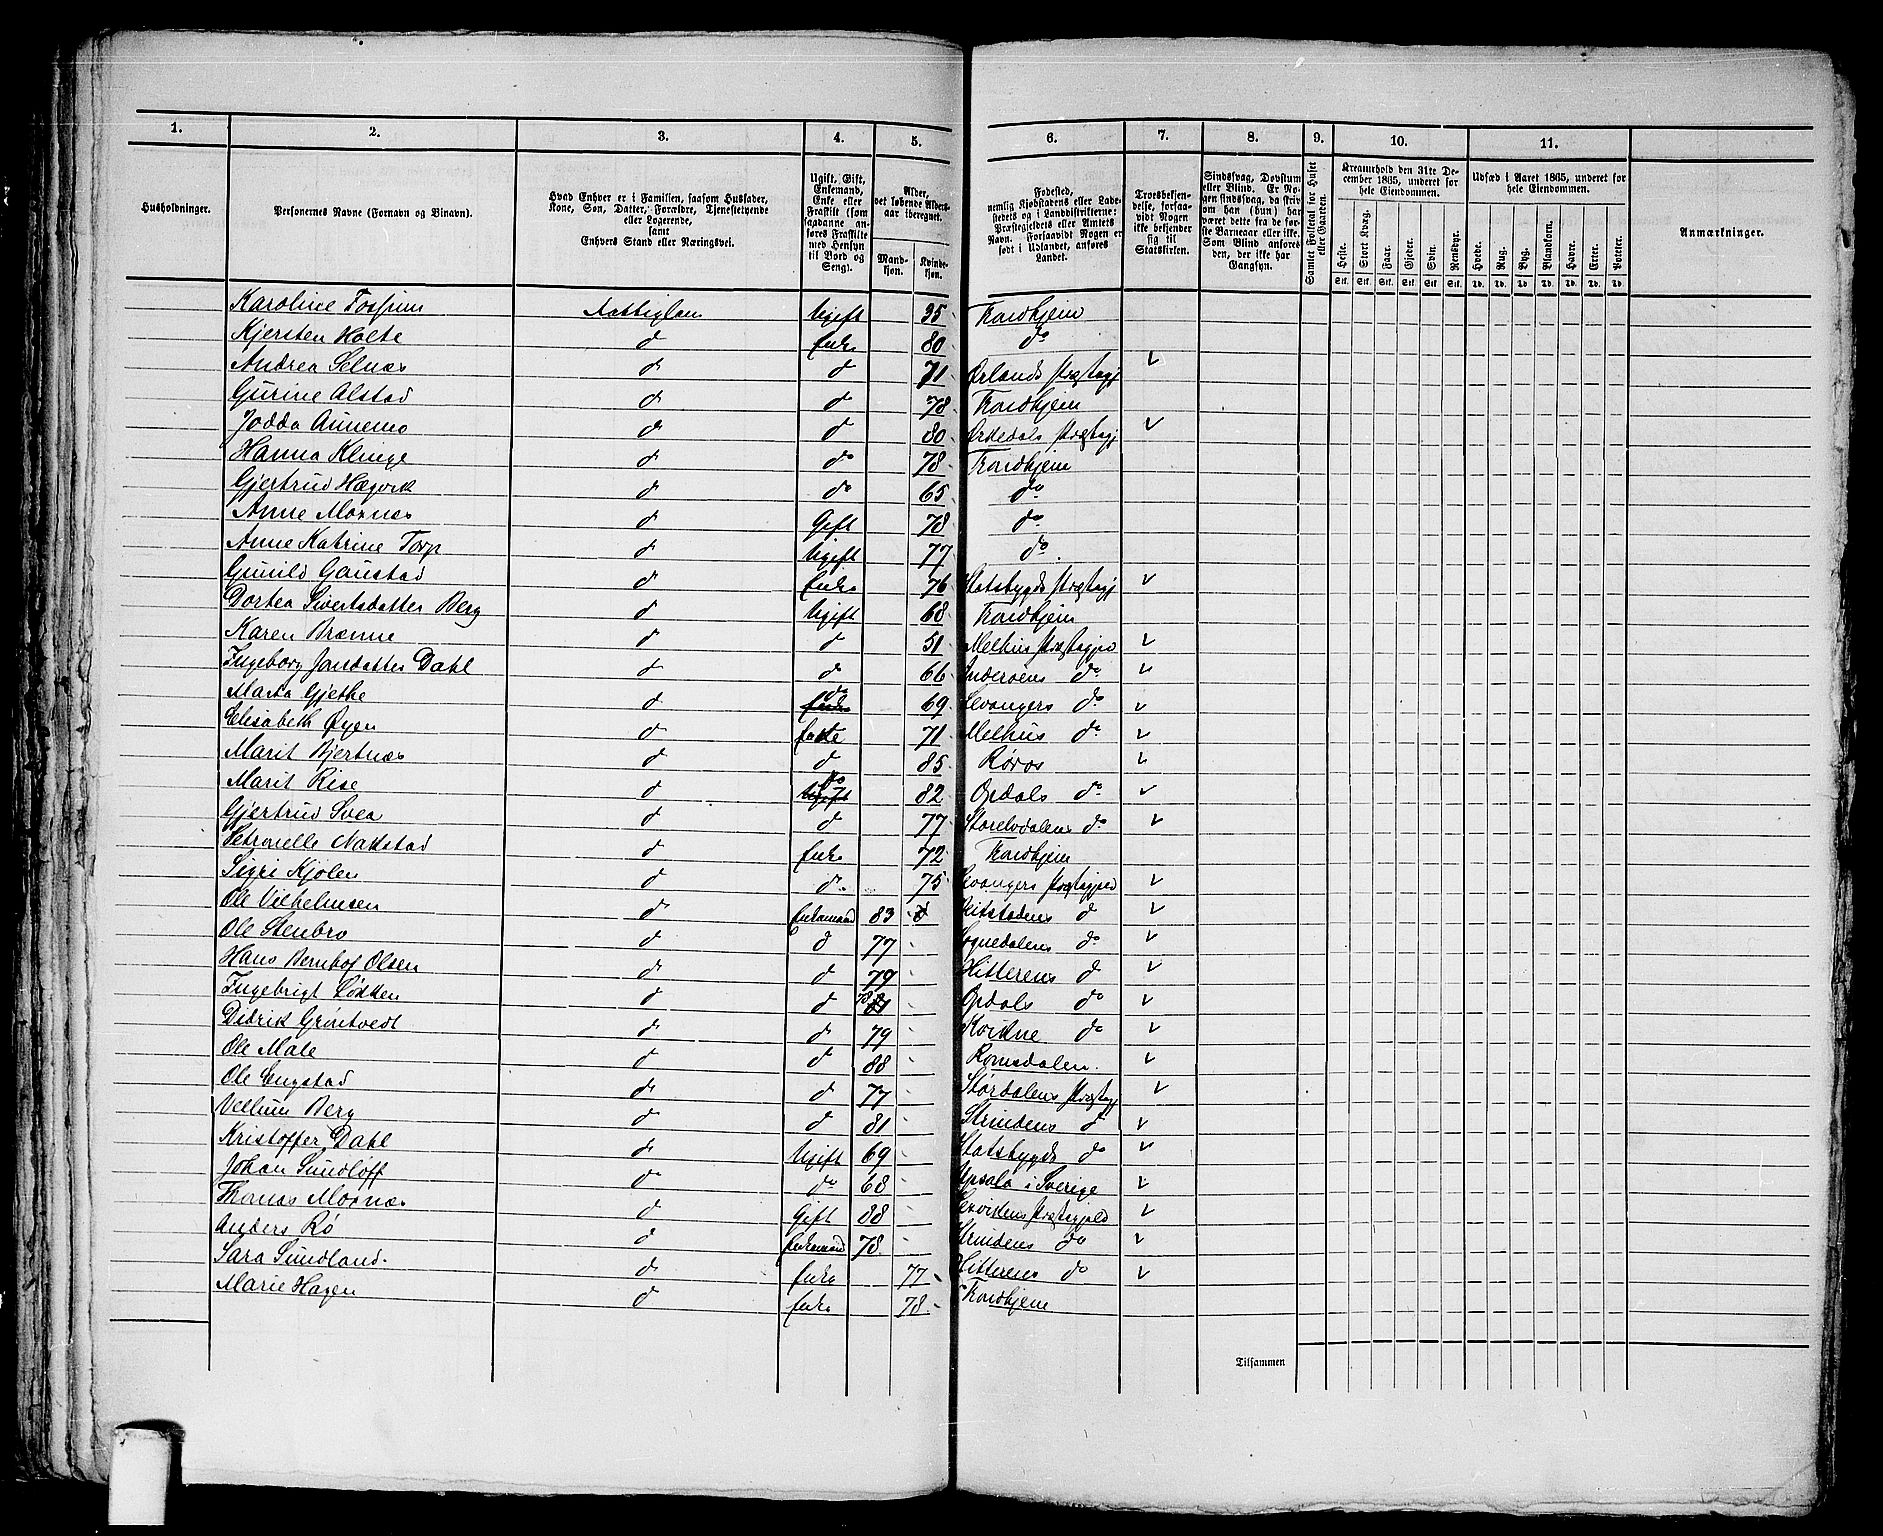 1. 2. 3. 4. 5. 6. 7. 8. 9. 10. 11.
Husholdninger. Personernes Navne (Fornavn og Binavn). Hvad Enhver er i Familien, saasom Husfader, Kone, Søn, Datter, Forældre, Tjenestetyende eller Logerende, samt Enhvers Stand eller Næringsvei. Ugift, Gift, Enkemand, Enke eller Fraskilt (som saadanne anføres Fraskilte med Hensyn til Bord og Seng). Alder, det løbende Aldersaar iberegnet. Mandkjøn. Kvindekjøn. Fødested, nemlig Kjøbstadens eller Ladestedets og i Landdistrikterne: Præstegjeldets eller Amtets Navn. Forsaavidt Nogen er født i Udlandet, anføres Landet. Troesbekjendelse, forsaavidt Nogen ikke bekjender sig til Statskirken. Sindssvag, Døvstum eller Blind. Er Nogen sindssvag, da skrives om han (hun) har været dette fra de første Barneaar eller ikke. Som Blind anføres den, der ikke har Gangsyn. Samlet Folketal for Huset eller Gaarden. Kreaturhold den 31te December 1865, underet for hele Eiendommen. Udsæd i Aaret 1865, underet for hele Eiendommen. Anmærkninger.
Heste. Stort Kvæg. Faar. Gjeder. Svin. Rensdyr. Hvede. Rug. Byg. Blandkorn. Havre. Erter. Poteter.
Stk. Stk. Stk. Stk. Stk. Stk. Td. Td. Td. Td. Td. Td. Td.
Karoline Fossum Fattiglem Ugift 35 Trondhjem
Kjersten Holte d Enke 80 do
Andrea Selnæs d d 71 Ørlands Præstegj
Gurine Alstad d d 78 Trondhjem
Jodda Aunemo d d 80 Orkedals Præstegj
Hanna Klinge d do 78 Trondhjem
Gjertrud Hægvik d do 65 do
Anne Moxnes d Gift 78 do
Anne Katrine Torp d Ugift 77 do
Gunild Gaustad d Enke 76 Statsbygds Præstegj
Dortea Sivertsdatter Berg d Ugift 68 Trondhjem
Karen Brænne d d 51 Melhus Præstegjed
Ingeborg Jonsdatter Dahl d d 66 Inderøens do
Marta Gjethe d do 69 Levangers do
Elisabeth Øyen d Enke 71 Melhus do
Marit Bjertnæs d d 85 Røros
Marit Rise d do 82 Opdals do
Gjertrud Svea d d 77 Storelvdalens do
Petronelle Natstad d Enke 72 Trondhjem
Sigri Kjølen d d 75 Levangers Præstegjeld
Ole Vilhelmsen d Enkemand 83 Beitstadens d
Ole Stenbro d d 77 Soknedalens do
Hans Bernhof Olsen d d 79 Hitterens d
Ingebrigt Løkken d d 78 Opdals do
Didrik Grøntvedt d d 79 Kvikne do
Ole Male d d 88 Romsdalen.
Ole Engstad d d 77 Størdalens Præstegj
Vellum Berg d d 81 Strindens d
Kristoffer Dahl d Ugift 69 Statsbygds do
Johan Sundløff do do 68 Upsala i Sverige
Thomas Moxnæs d Gift 88 Præstegjeld
Anders Rø d Enkemand 78 Strindens do
Sara Sundland d Enke 77 Hitterens do
Marie Hagen d Enke 78 Trondhjem
Tilsammen